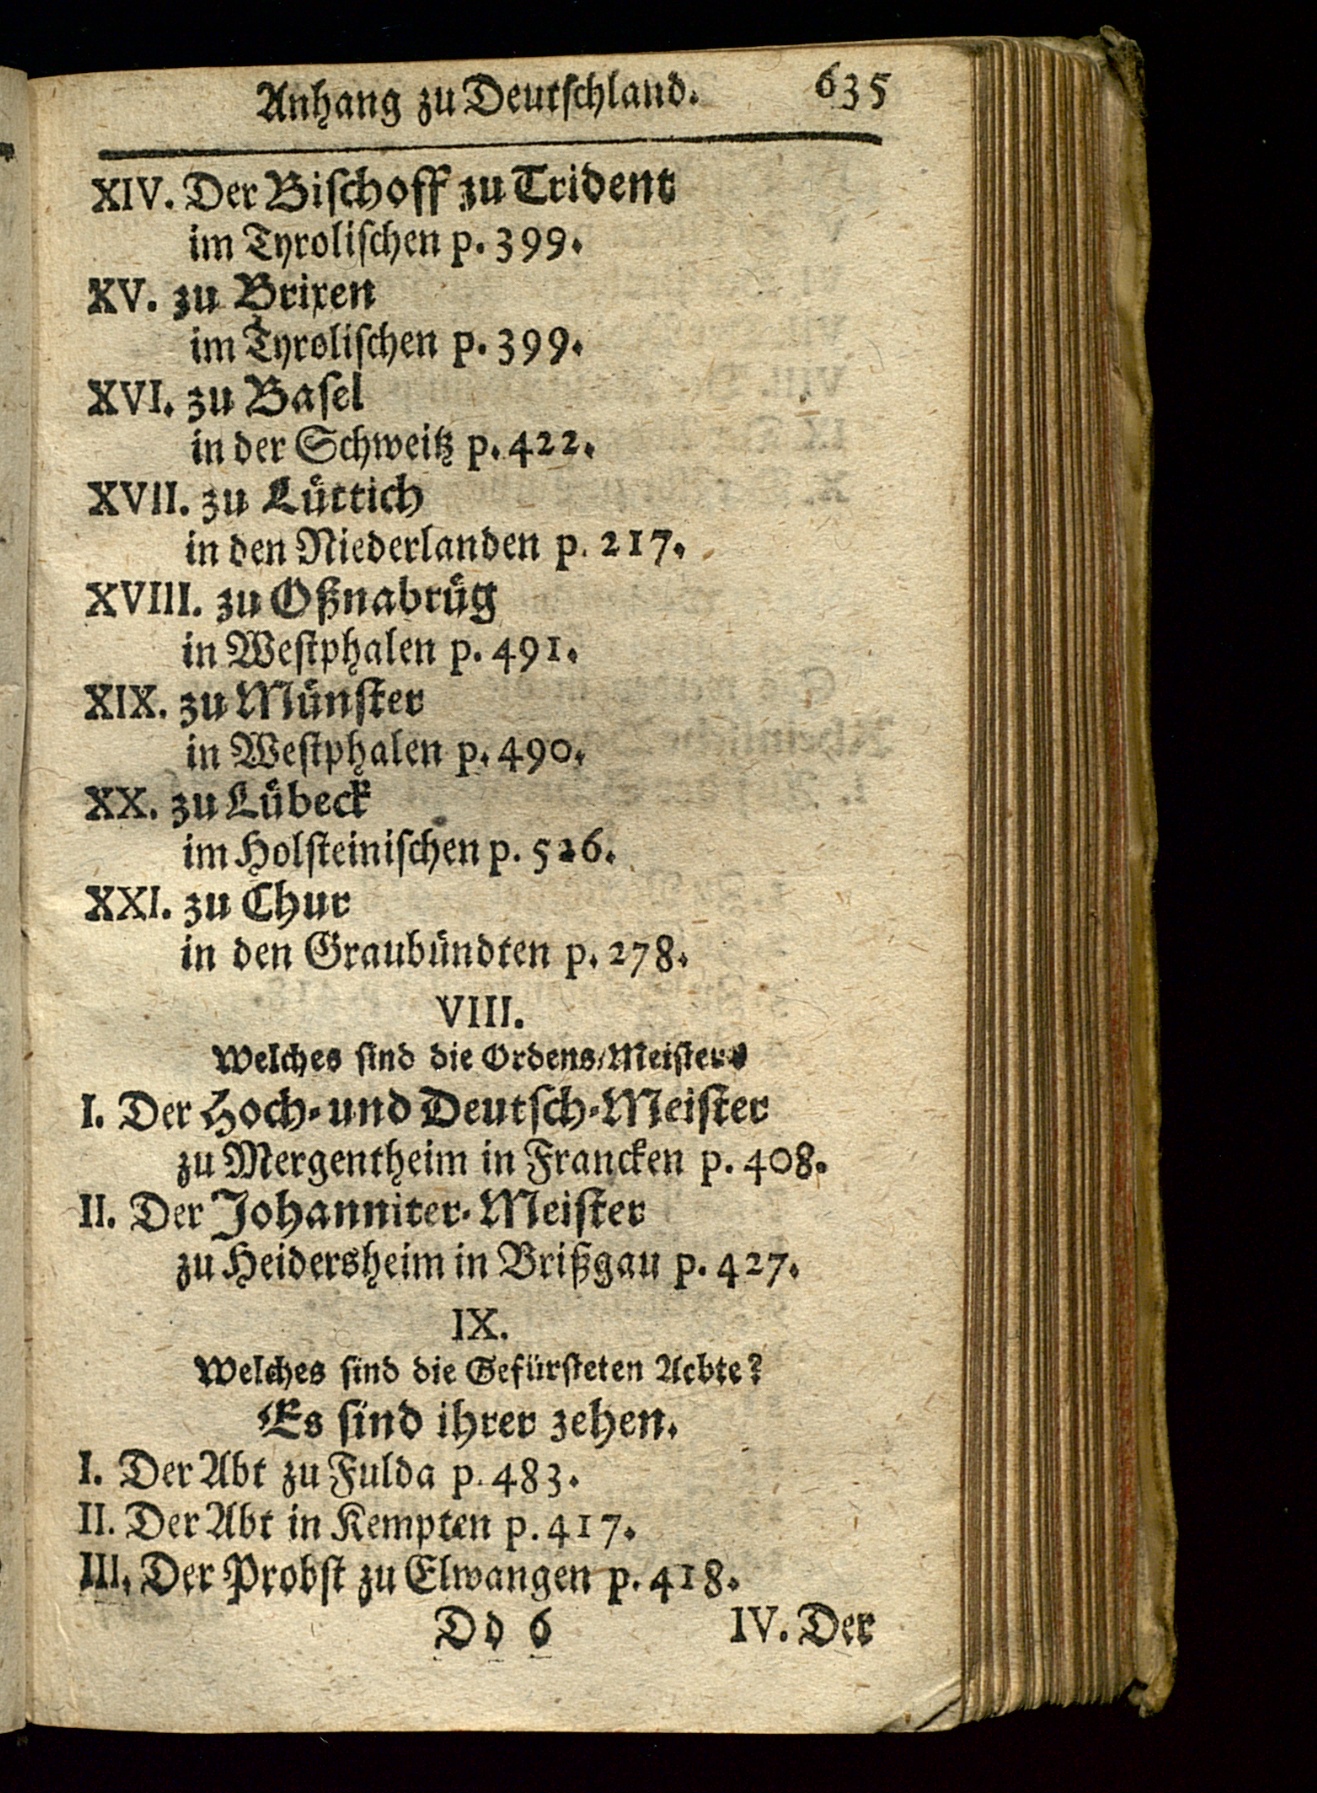 Anhang zu Deutschland. 635
XIV. Der Bischoff zu Trident
im Tyrolischen p. 399.
XV. zu Brixen
im Tyrolischen p. 399.
XVI. zu Basel
in der Schweitz p. 422.
XVII. zu Lüttich
in den Niederlanden p. 217.
XVIII. zu Oßnabrüg
in Westphalen p. 491.
XIX. zu Münster
in Westphalen p. 490.
XX. zu Lübeck
im Holsteinischen p. 526.
XXI. zu Chur
in den Graubündten p. 278.
VIII.
Welches sind die Ordens-Meister?
I. Der Hoch- und Deutsch-Meister
zu Mergentheim in Francken p. 408.
II. Der Johanniter-Meister
zu Heidersheim in Brißgau p. 427.
IX.
Welches sind die Gefürsteten Aebte?
Es sind ihrer zehen.
I. Der Abt zu Fulda p. 483.
II. Der Abt in Kempten p. 417.
III. Der Probst zu Elwangen p. 418.
Dd 6 IV. Der